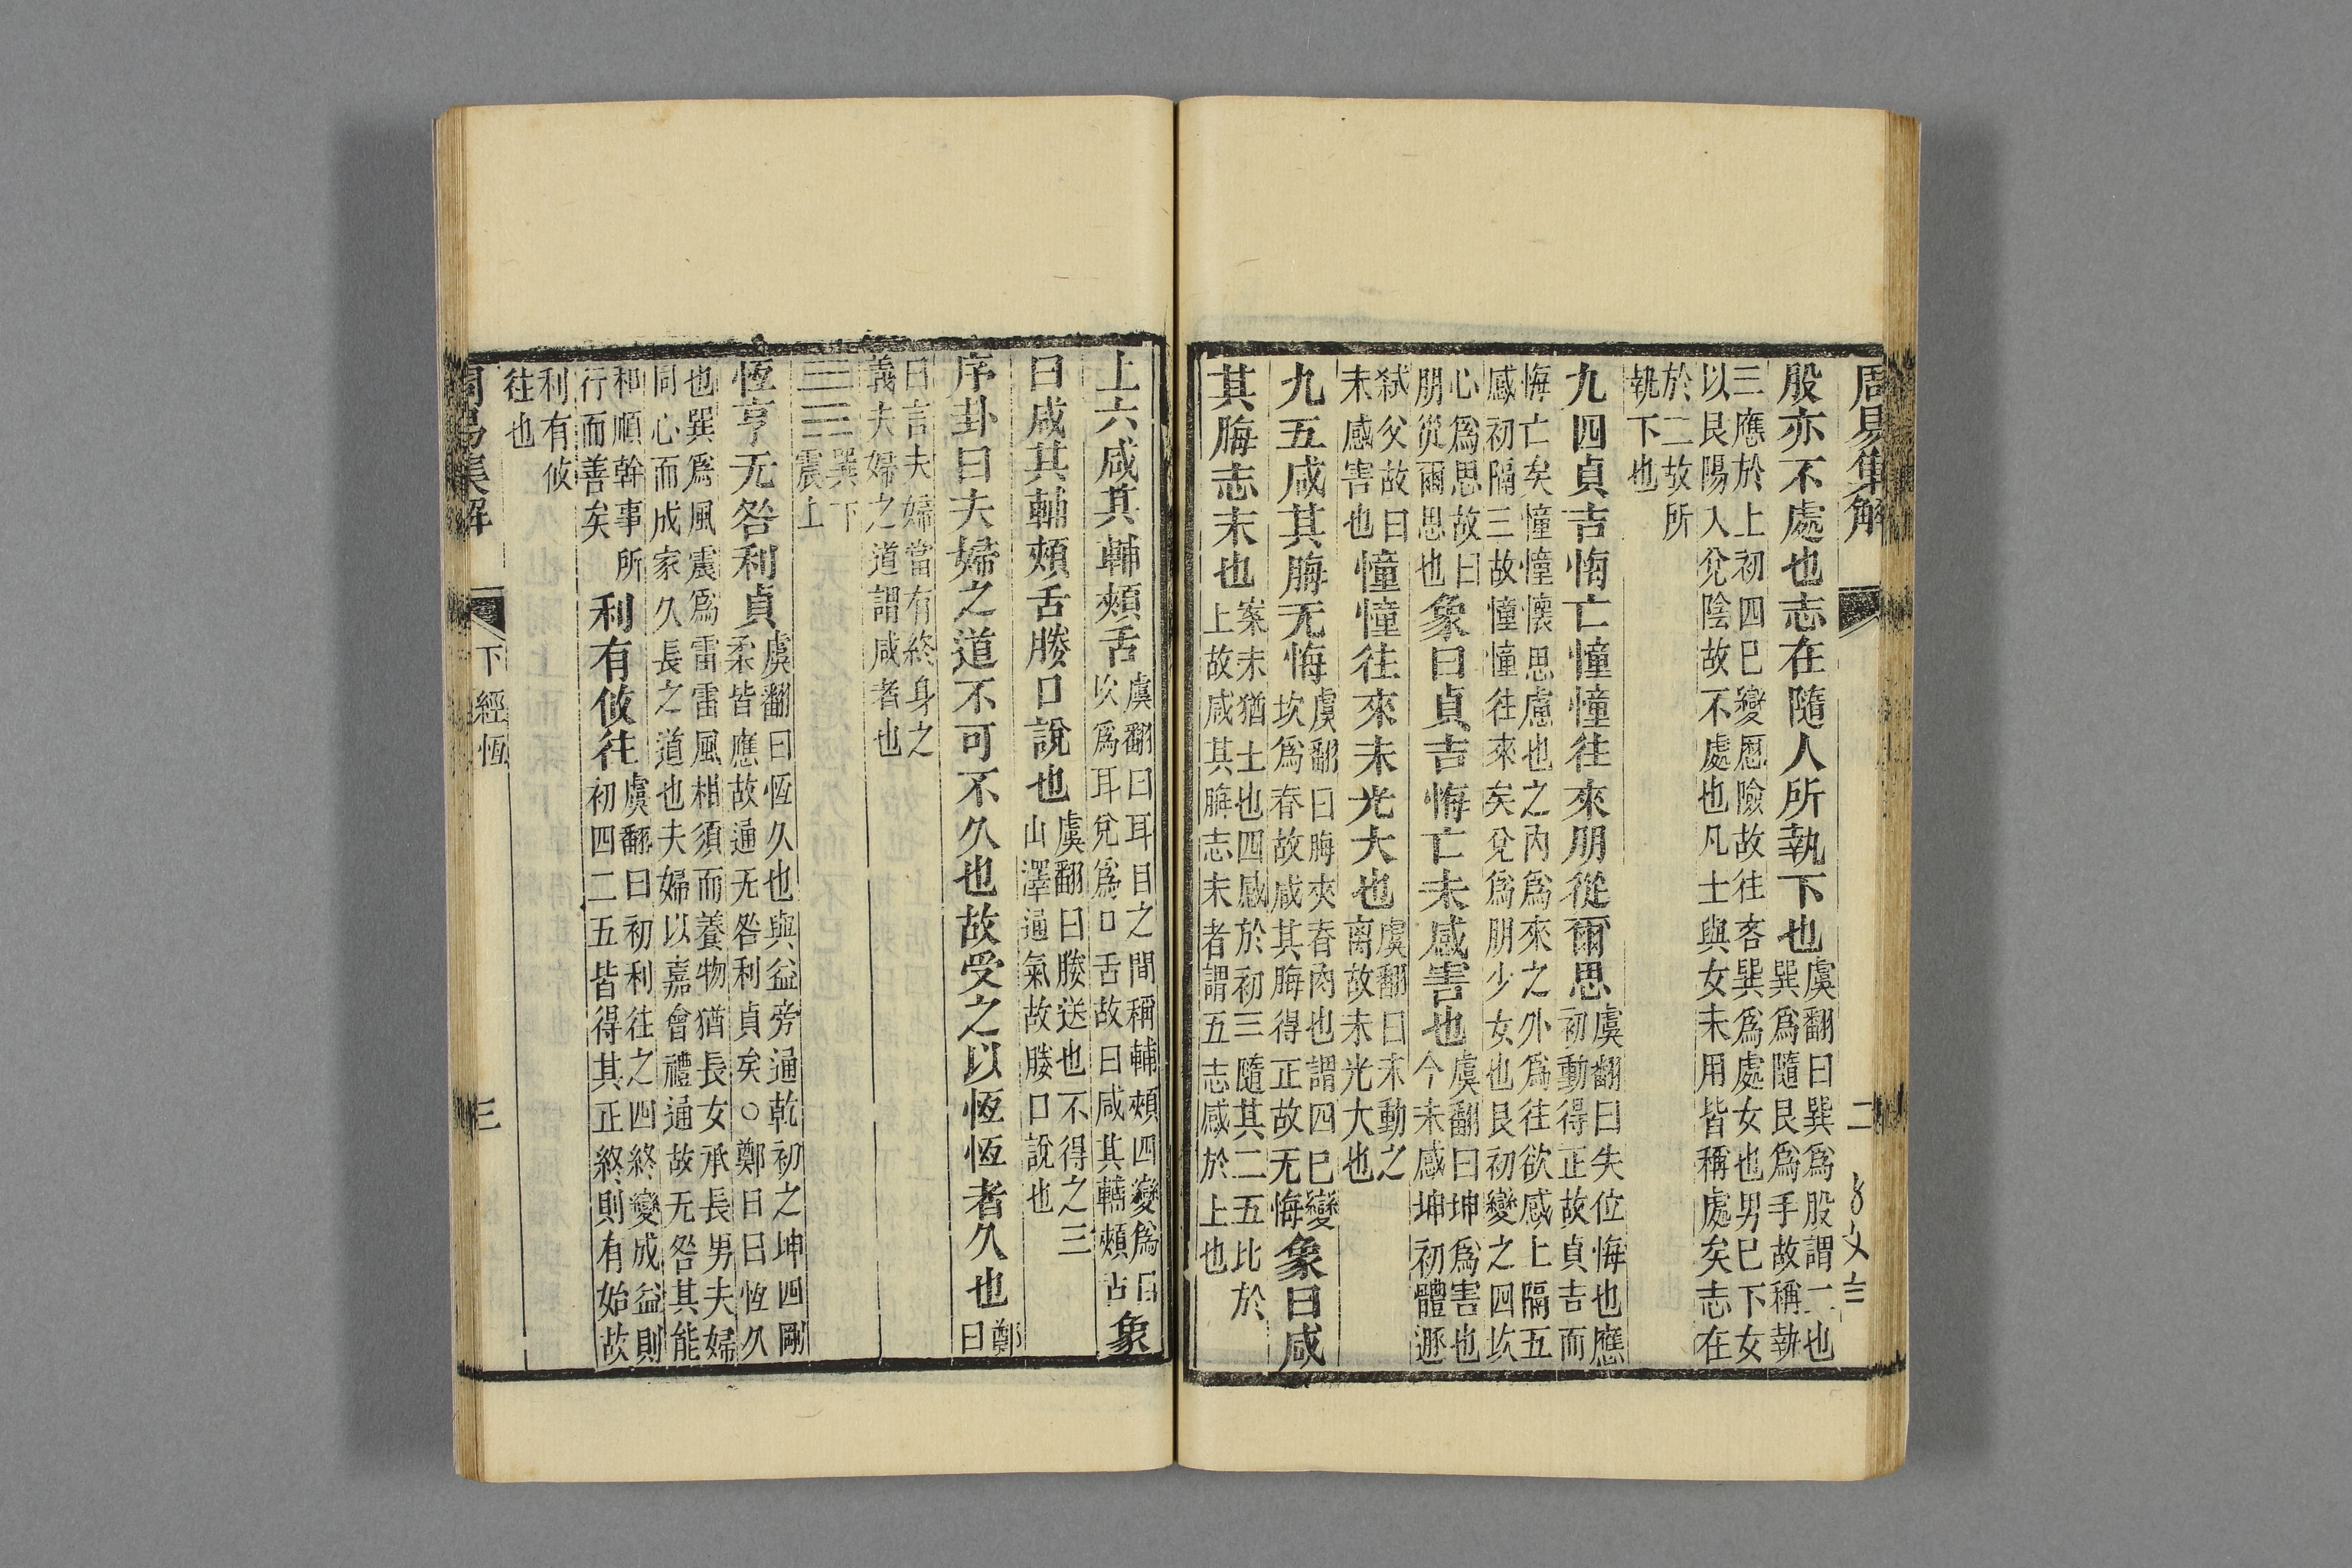 周易集解 二
股亦不處也志在隨人所執下也虞翻曰巽爲股謂二也巽爲隨艮爲手故稱執
三應於上初四已變歷險故往吝巽爲處女也男已下女
以艮陽入兌陰故不處也凡士與女未用皆稱處矣志在
於二故所
執下也
九四貞吉悔亡憧憧往來朋從爾思虞翻曰失位悔也應初動得正故貞吉而
悔亡矣憧憧懷思慮也之內爲來之外爲往欲感上隔五
感初隔三故憧憧往來矣兌爲朋少女也艮初變之四坎
心爲思故曰朋從爾思也象曰貞吉悔亡未感害也虞翻曰坤爲害也今未感坤初體遯
弒父故曰未感害也憧憧往來未光大也虞翻曰未動之離故未光大也
九五咸其脢无悔虞翻曰脢夾脊肉也謂四已變坎爲脊故咸其脢得正故无悔象曰咸
其脢志末也案末猶上也四感於初三隨其二五比於上故咸其脢志末者謂五志感於上也
上六咸其輔頰舌虞翻曰耳目之間稱輔頰四變爲目坎爲耳兌爲口舌故曰咸其輔頰舌象
曰咸其輔頰舌媵口說也虞翻曰媵送也不得之三山澤通氣故媵口說也
序卦曰夫婦之道不可不久也故受之以恆恆者久也鄭曰
曰言夫婦當有終身之
義夫婦之道謂咸者也
䷟巽下震上
恆亨无咎利貞虞翻曰恆久也與益旁通乾初之坤四剛柔皆應故通无咎利貞矣○鄭曰曰恆久
也巽爲風震爲雷雷風相須而養物猶長女承長男夫婦
同心而成家久長之道也夫婦以嘉會禮通故无咎其能
和順幹事所行而善矣利有攸往虞翻曰初利往之四終變成益則初四二五皆得其正終則有始故
利有攸
往也
周易集解 下經 恆 三